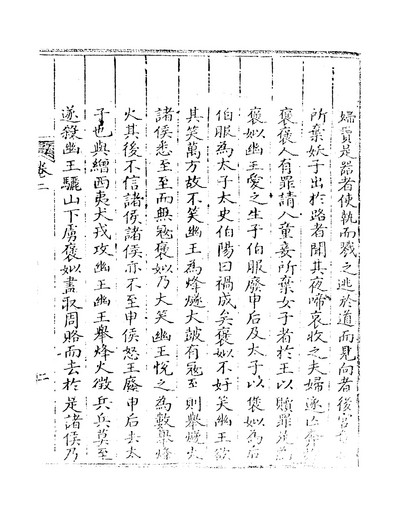 婦賣是器者使執而戮之逃於道而見向者後宮
所棄妖子出於路者聞其夜啼哀收之夫婦遂亡奔
褒褒人有罪請入童妾所棄女子者於王以贖罪是為
褒姒幽王愛之生子伯服廢申后及太子以褒姒為后
伯服為太子太史伯陽曰禍成矣褒姒不好笑幽王欲
其笑萬方故不笑幽王為烽燧大皷有寇至則舉燧火
諸侯悉至至而無寇褒姒乃大笑幽王悅之為數舉烽
火其後不信諸侯諸侯亦不至申侯怒王廢申后去太
子也與繒西夷犬戎攻幽王幽王舉烽火徵兵兵莫至
遂殺幽王驪山下虜褒姒盡取周賂而去於是諸侯乃
卷二